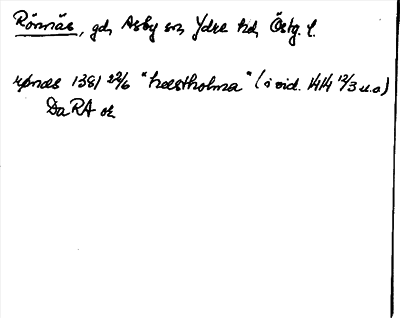 Rönnäs, gd, Asby sn Ydre hd, Östg. l.
rønæs 1381 22/6 "hæstholma" (i vid. 1414 12/3 u.o)
DaRA or